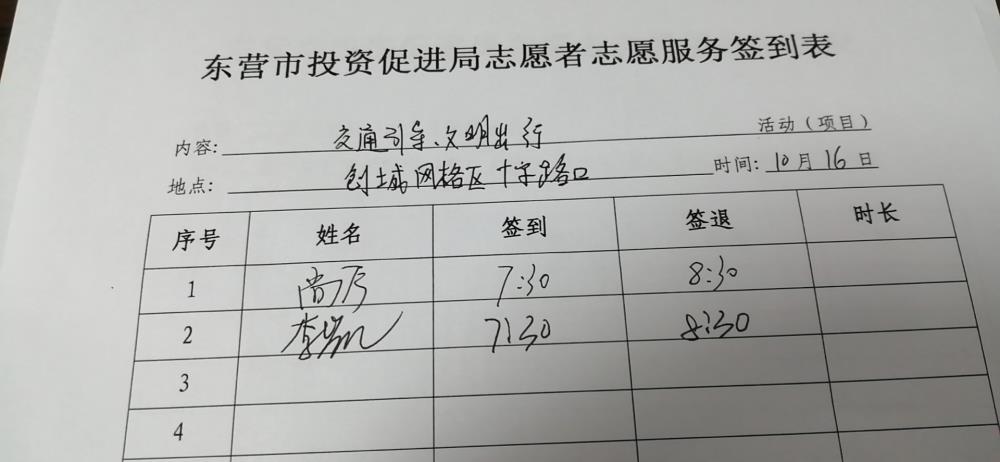 东营市投资促进局志愿者志愿服务签到表
内容: 交通引导、文明出行 活动（项目）
地点: 创城网格区十字路口 时间: 10月16日
序号 姓名 签到 签退 时长
1 尚 7:30 8:30
2 李 7:30 8:30
3
4